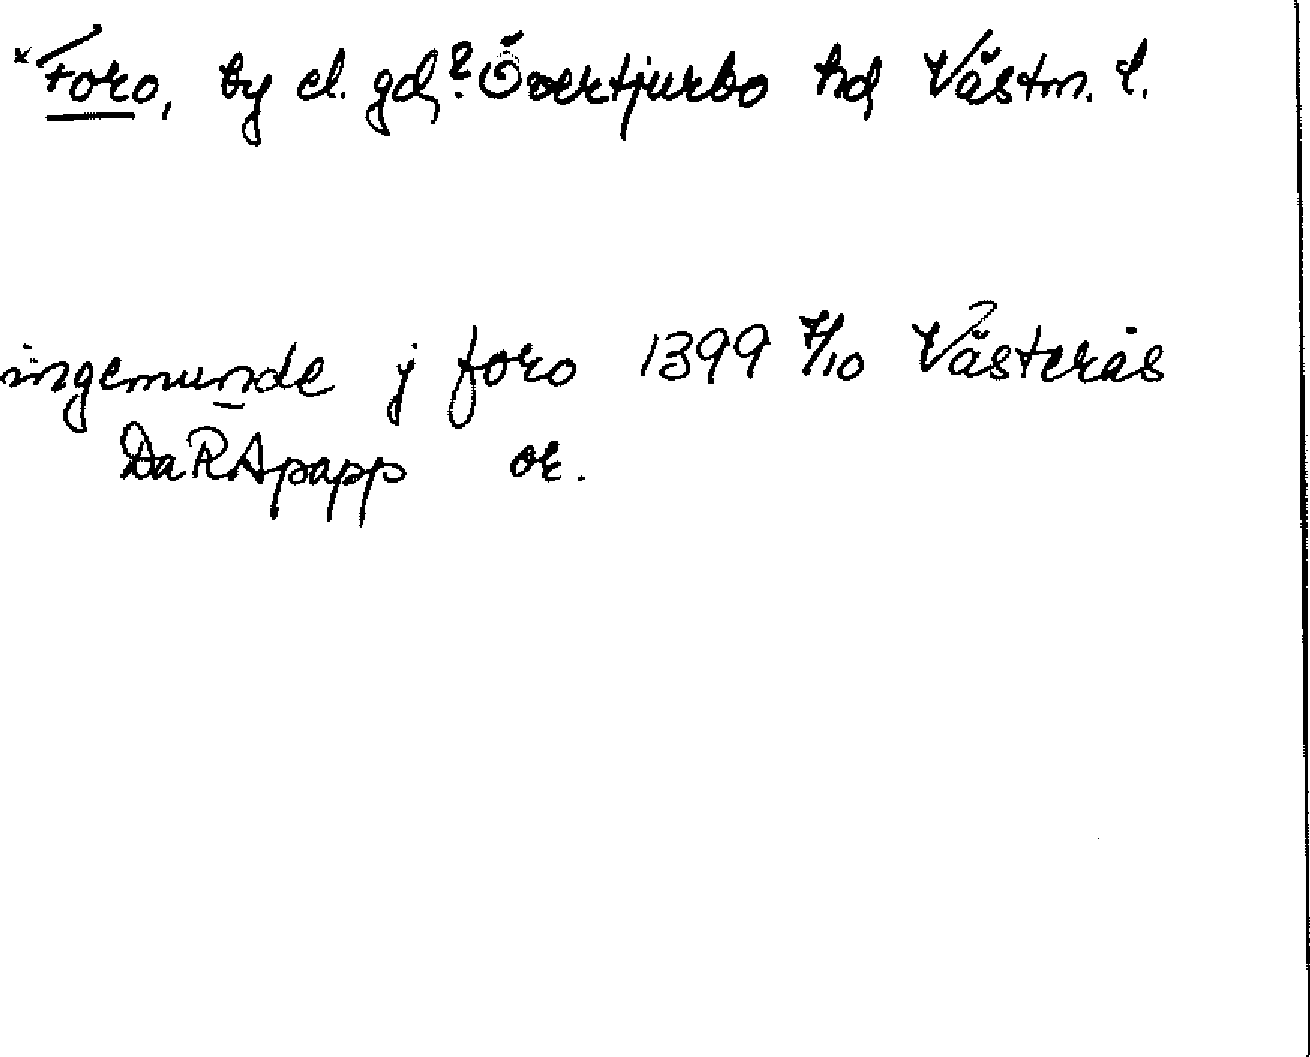 *Foro, by el. gd? Övertjurbo hd Västm. l.
ingemunde j foro 1399 7/10 Västerås
DaRApapp or.